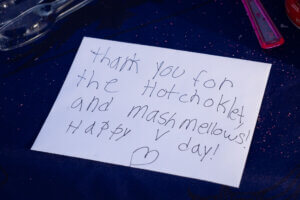 thank you for
the Hotchoklet,
and mashmellows!
Happy V day!